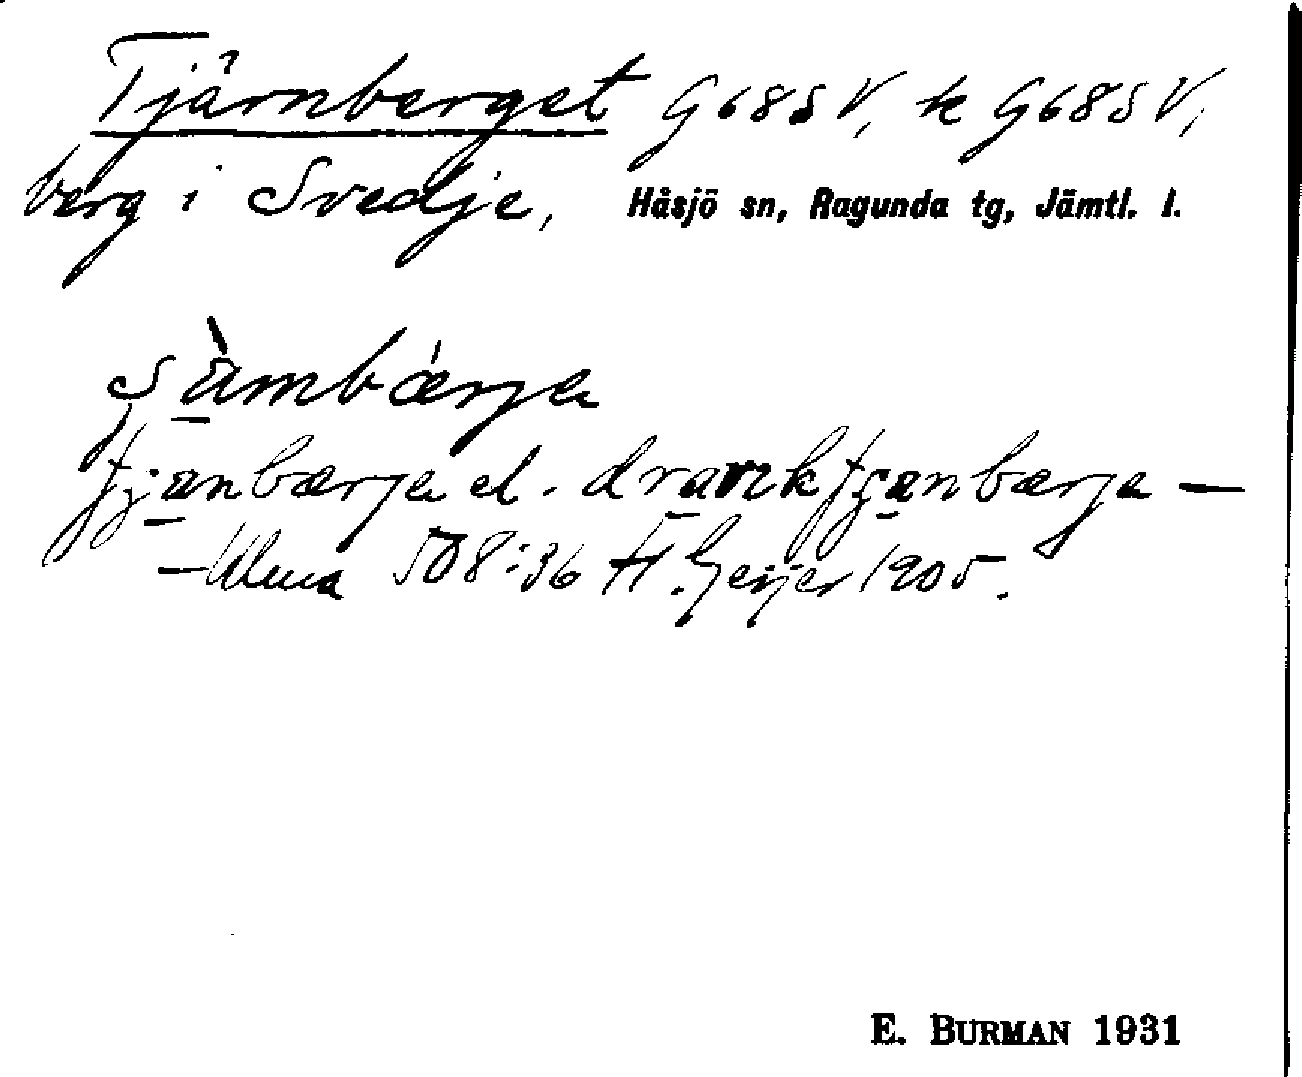 Tjärnberget G68SV, k G68SV,
berg i Svedje, Håsjö sn, Ragunda tg, Jämtl. l.
tjanbærja el. dranktjanbærja —
— Ulma 508:36 H. Geijer 1905.
E. BURMAN 1931